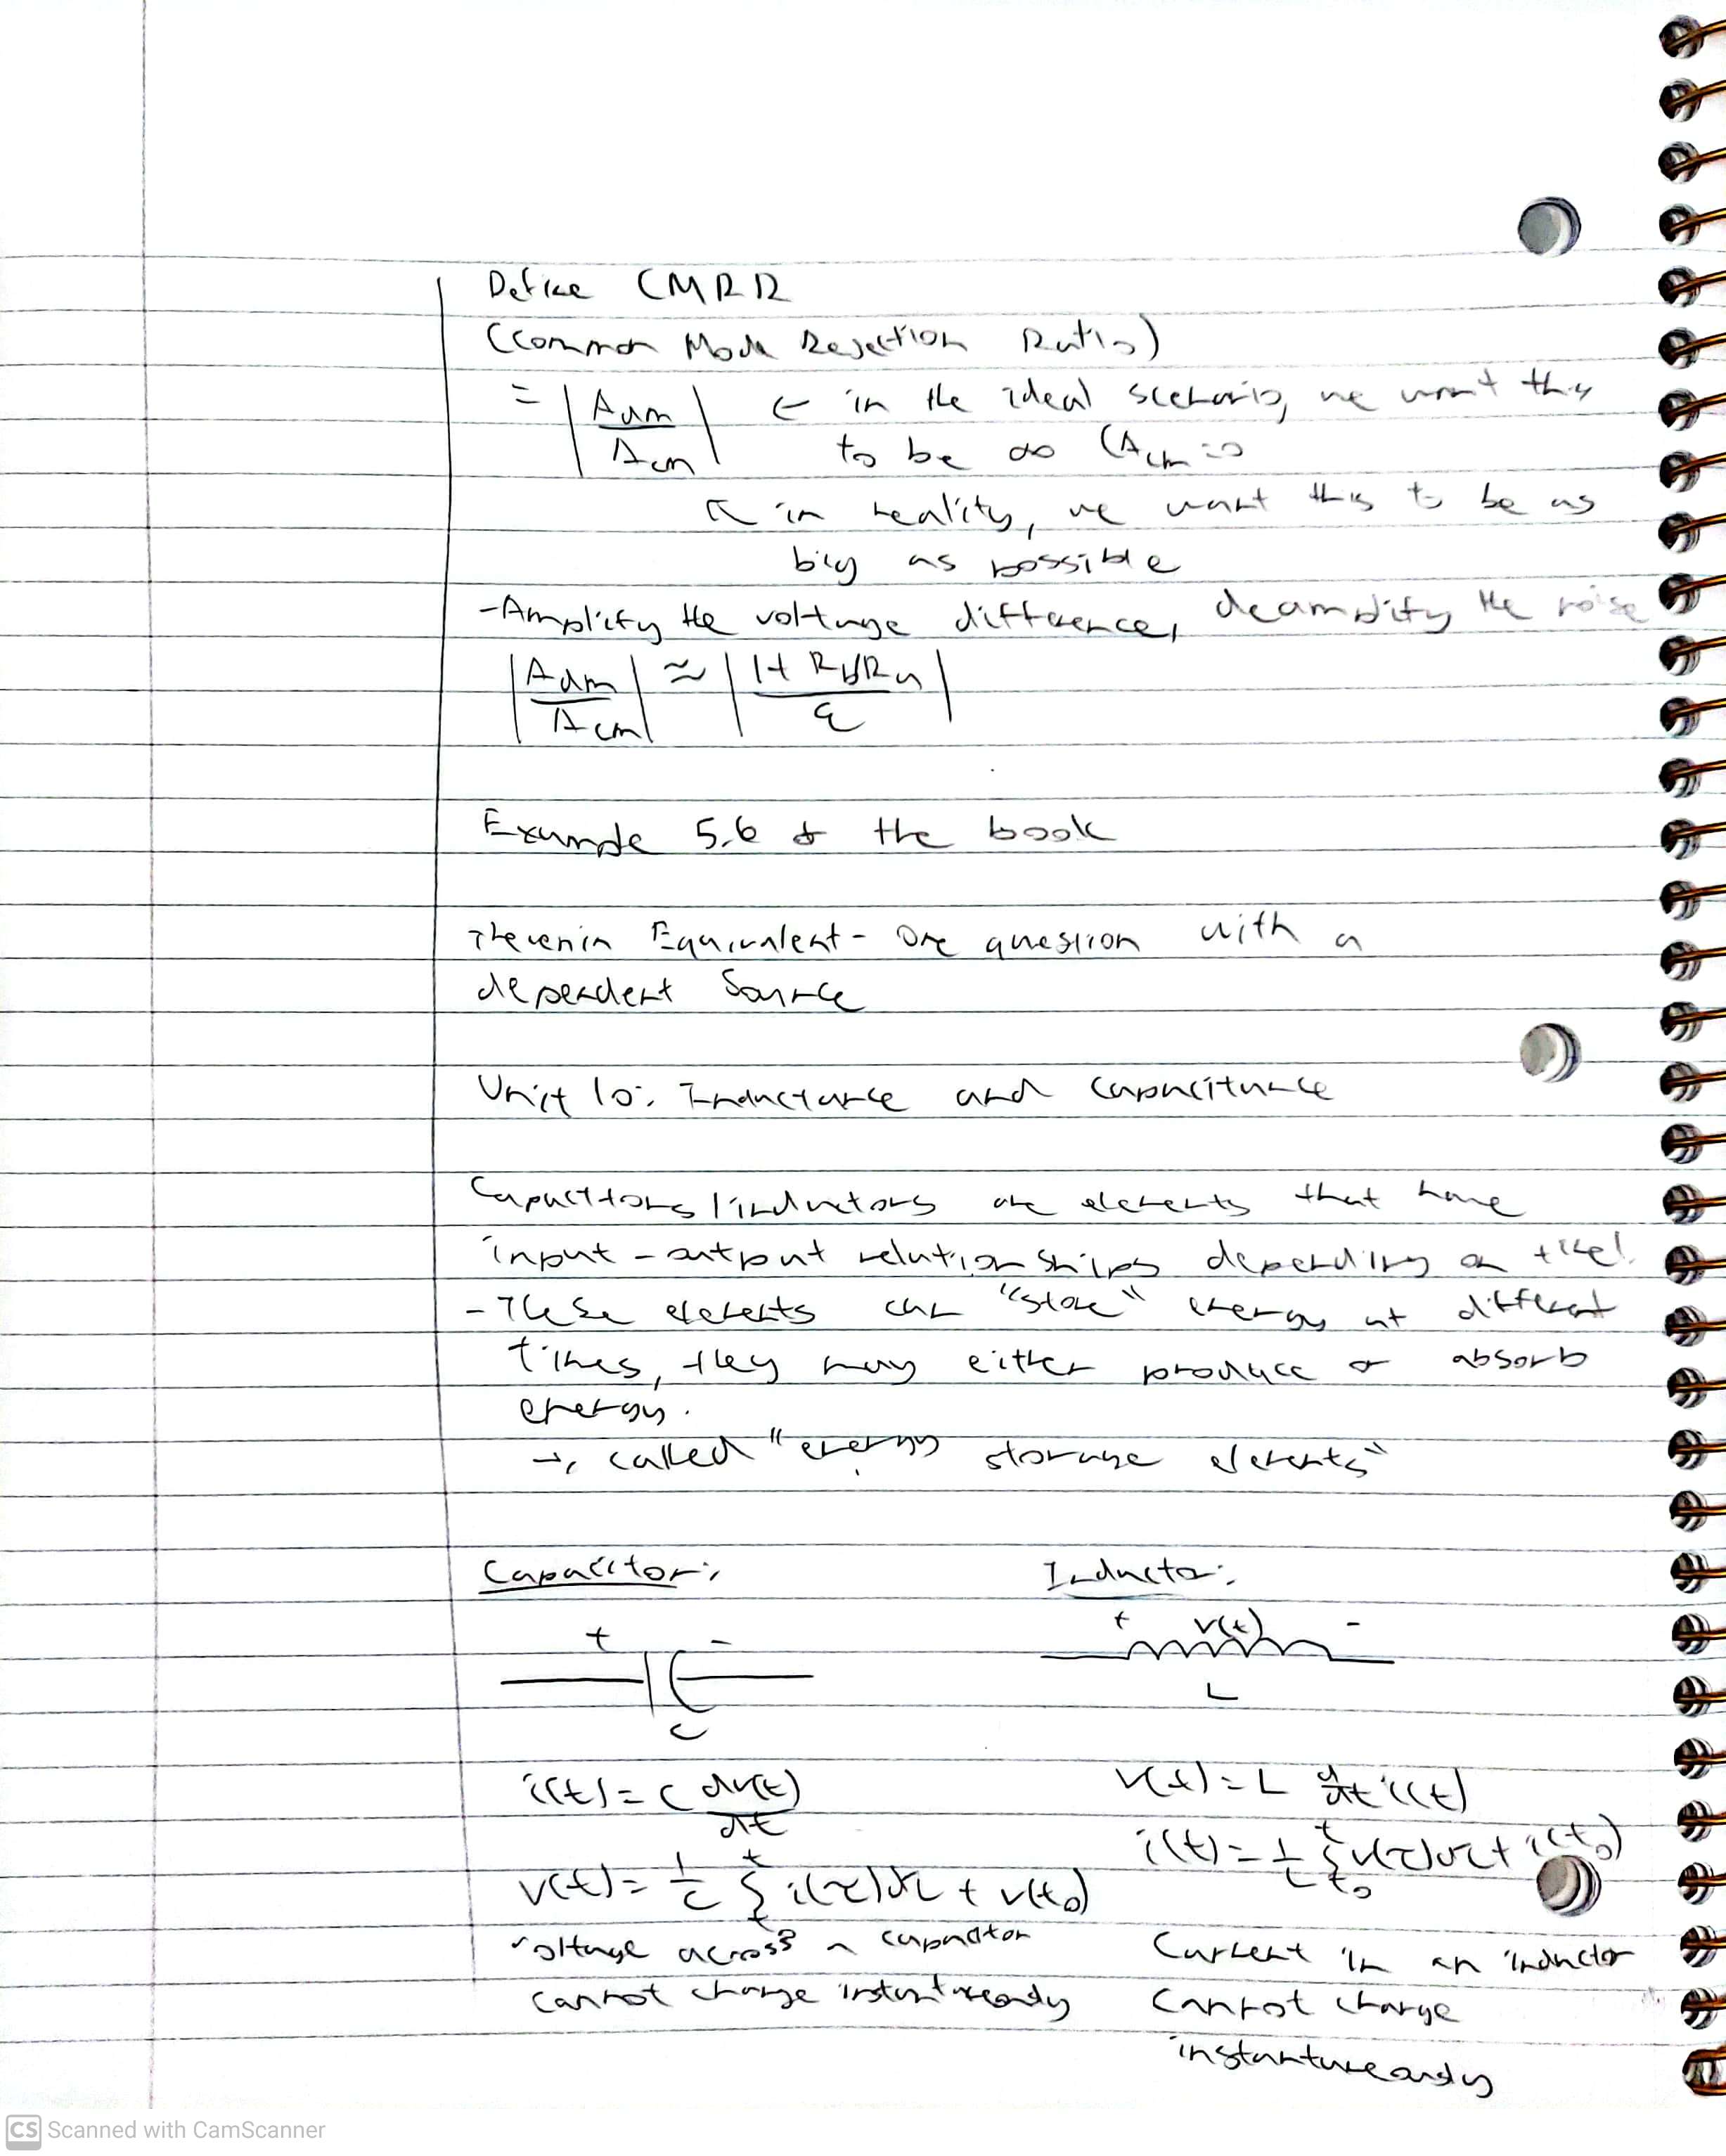 Define CMRR
(Common Mode Rejection Ratio)
= |Adm / Acm| ← in the ideal scenario, we want this
to be ∞ (Acm = 0
↖ in reality, we want this to be as
big as possible
- Amplify the voltage difference, deamplify the noise
|Adm / Acm| ≈ |(1 + Rb/Ra) / ε|
Example 5.6 of the book
Thevenin Equivalent - One question with a
dependent source
Unit 10: Inductance and Capacitance
Capacitors/inductors are elements that have
input-output relationships depending on time!
- These elements can "store" energy at different
times, they may either produce or absorb
energy.
→ called "energy storage elements"
Capacitor: Inductor:
+ - + v(t) -
C L
i(t) = C dv(t)/dt v(t) = L d/dt i(t)
v(t) = 1/C ∫_{t0}^{t} i(τ)dτ + v(t0) i(t) = 1/L ∫_{t0}^{t} v(τ)dτ + i(t0)
Voltage across a capacitor Current in an inductor
cannot change instantaneously cannot change
instantaneously
CS Scanned with CamScanner